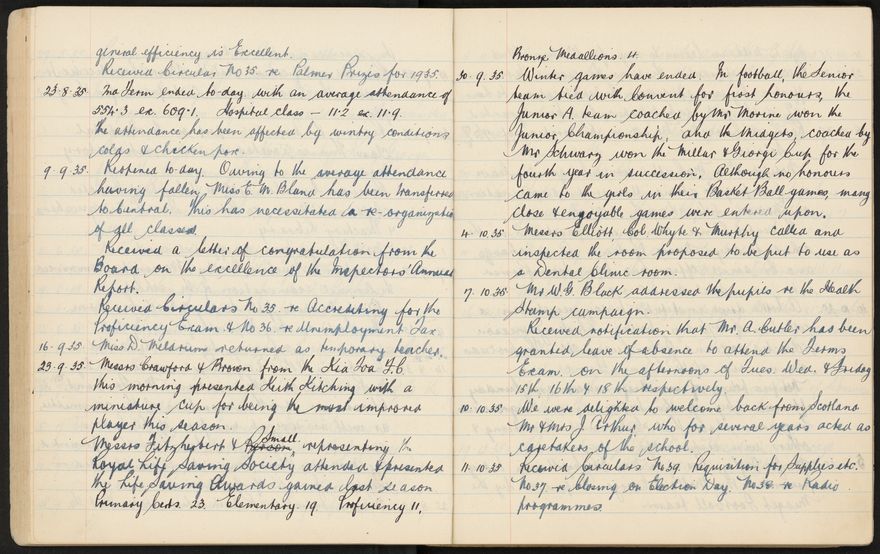 general efficiency is Excellent.
Received Circular No 35. re Palmer Prizes for 1935.
23.8.35 2nd Term ended to-day with an average attendance of
554.3 ex. 609.1. Hospital class — 11.2 ex. 11.9.
The attendance has been affected by wintry conditions
colds & chicken pox.
9.9.35. Reopened to-day. Owing to the average attendance
having fallen, Miss E. M. Bland has been transferred
to Central. This has necessitated a re-organization
of all classes.
Received a letter of congratulation from the
Board, on the excellence of the Inspectors' Annual
Report.
Received Circulars No 35. re Accrediting for the
Proficiency Exam. & No 36. re Unemployment Tax.
16.9.35 Miss D. Meldrum returned as temporary teacher.
23.9.35. Messrs Crawford & Brown from the Kia Toa F.C.
this morning presented Keith Kitching with a
miniature cup for being the most improved
player this season.
Small
Messrs Fitzherbert & representing the
Royal Life Saving Society attended & presented
the Life Saving Awards gained last season
Primary Certs. 23. Elementary. 19. Proficiency 11.
Bronze Medallions. 14.
30.9.35 Winter games have ended. In football, the Senior
team tied with Convent for first honours, the
Junior A. team coached by Mr Morine won the
Junior Championship, and the Midgets, coached by
Mr Schwarz won the Millar & Giorgi Cup for the
fourth year in succession. Although no honours
came to the girls in their Basket Ball games, many
close & enjoyable games were entered upon.
4.10.35 Messrs Elliott, Col. Whyte & Murphy called and
inspected the room proposed to be put to use as
a Dental Clinic room.
7.10.35 Mr W. G. Black addressed the pupils re the Health
Stamp campaign.
Received notification that Mr. A. Cutler has been
granted leave of absence to attend the Terms
Exam. on the afternoons of Tues. Wed. & Friday
15th 16th & 18th respectively.
10.10.35 We were delighted to welcome back from Scotland
Mr & Mrs J. Arthur who for several years acted as
caretakers of the school.
11.10.35 Received Circulars No 39. Requisition for Supplies etc.
No 37. re Closing on Election Day. No 38. re Radio
programmes.